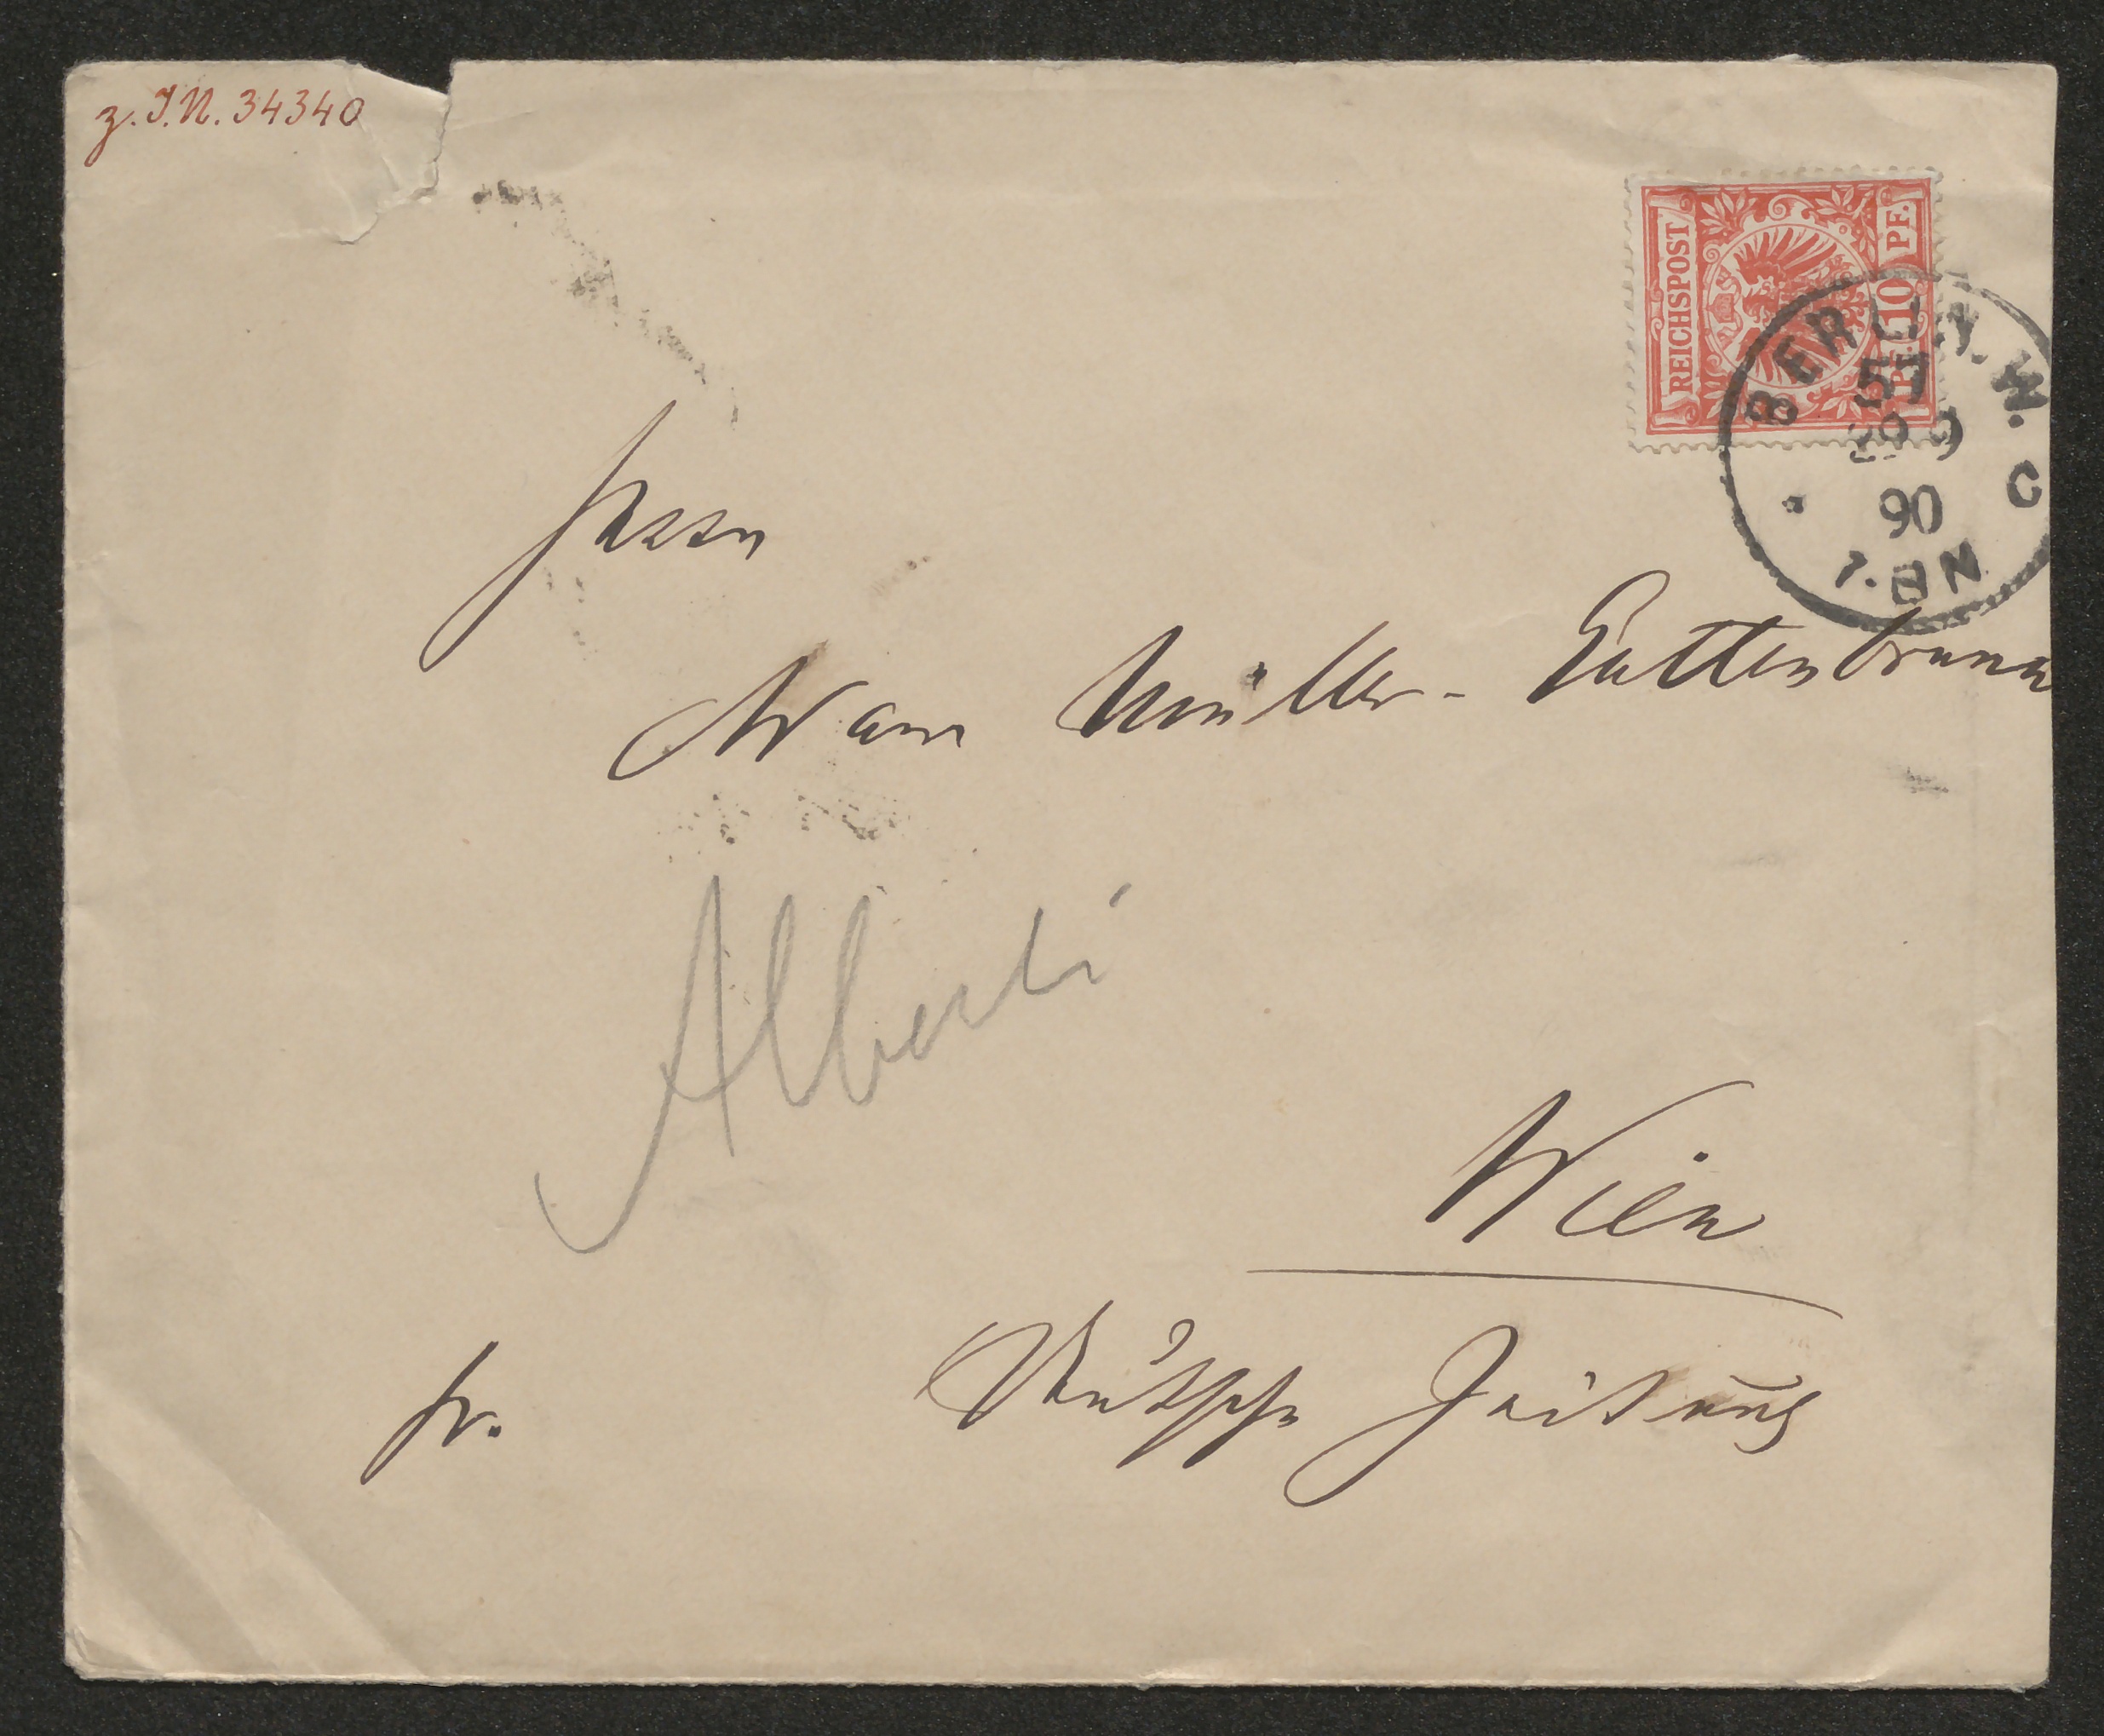 z. I.N. 34340
REICHSPOST
10 PF. PF.
BERLIN. W.
57
29 9
90
7-8N
C
Herrn
Adam Müller-Guttenbrunn
Alberti
Wien
fr. Deutsche Zeitung